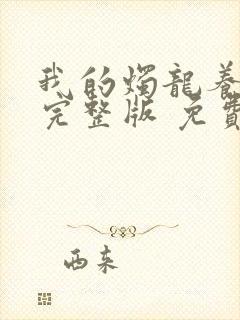 我的燭龍養
完整版 免費
西來